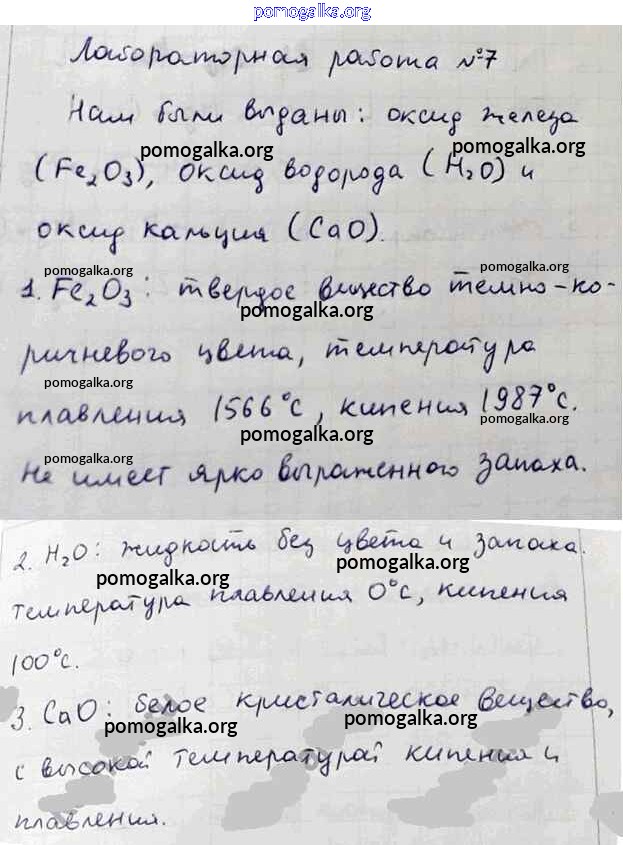 pomogalka.org
Лабораторная работа №7
Нам были выданы: оксид железа
pomogalka.org pomogalka.org
(Fe₂O₃), оксид водорода (H₂O) и
оксид кальция (CaO).
pomogalka.org pomogalka.org
1. Fe₂O₃: твердое вещество темно-ко-
pomogalka.org
ричневого цвета, температура
pomogalka.org
плавления 1566°С, кипения 1987°С.
pomogalka.org
pomogalka.org
Не имеет ярко выраженного запаха.
2. H₂O: жидкость без цвета и запаха.
pomogalka.org pomogalka.org
температура плавления 0°С, кипения
100°С.
3. CaO: белое кристалическое вещество,
pomogalka.org pomogalka.org
с высокой температурай кипения и
плавления.